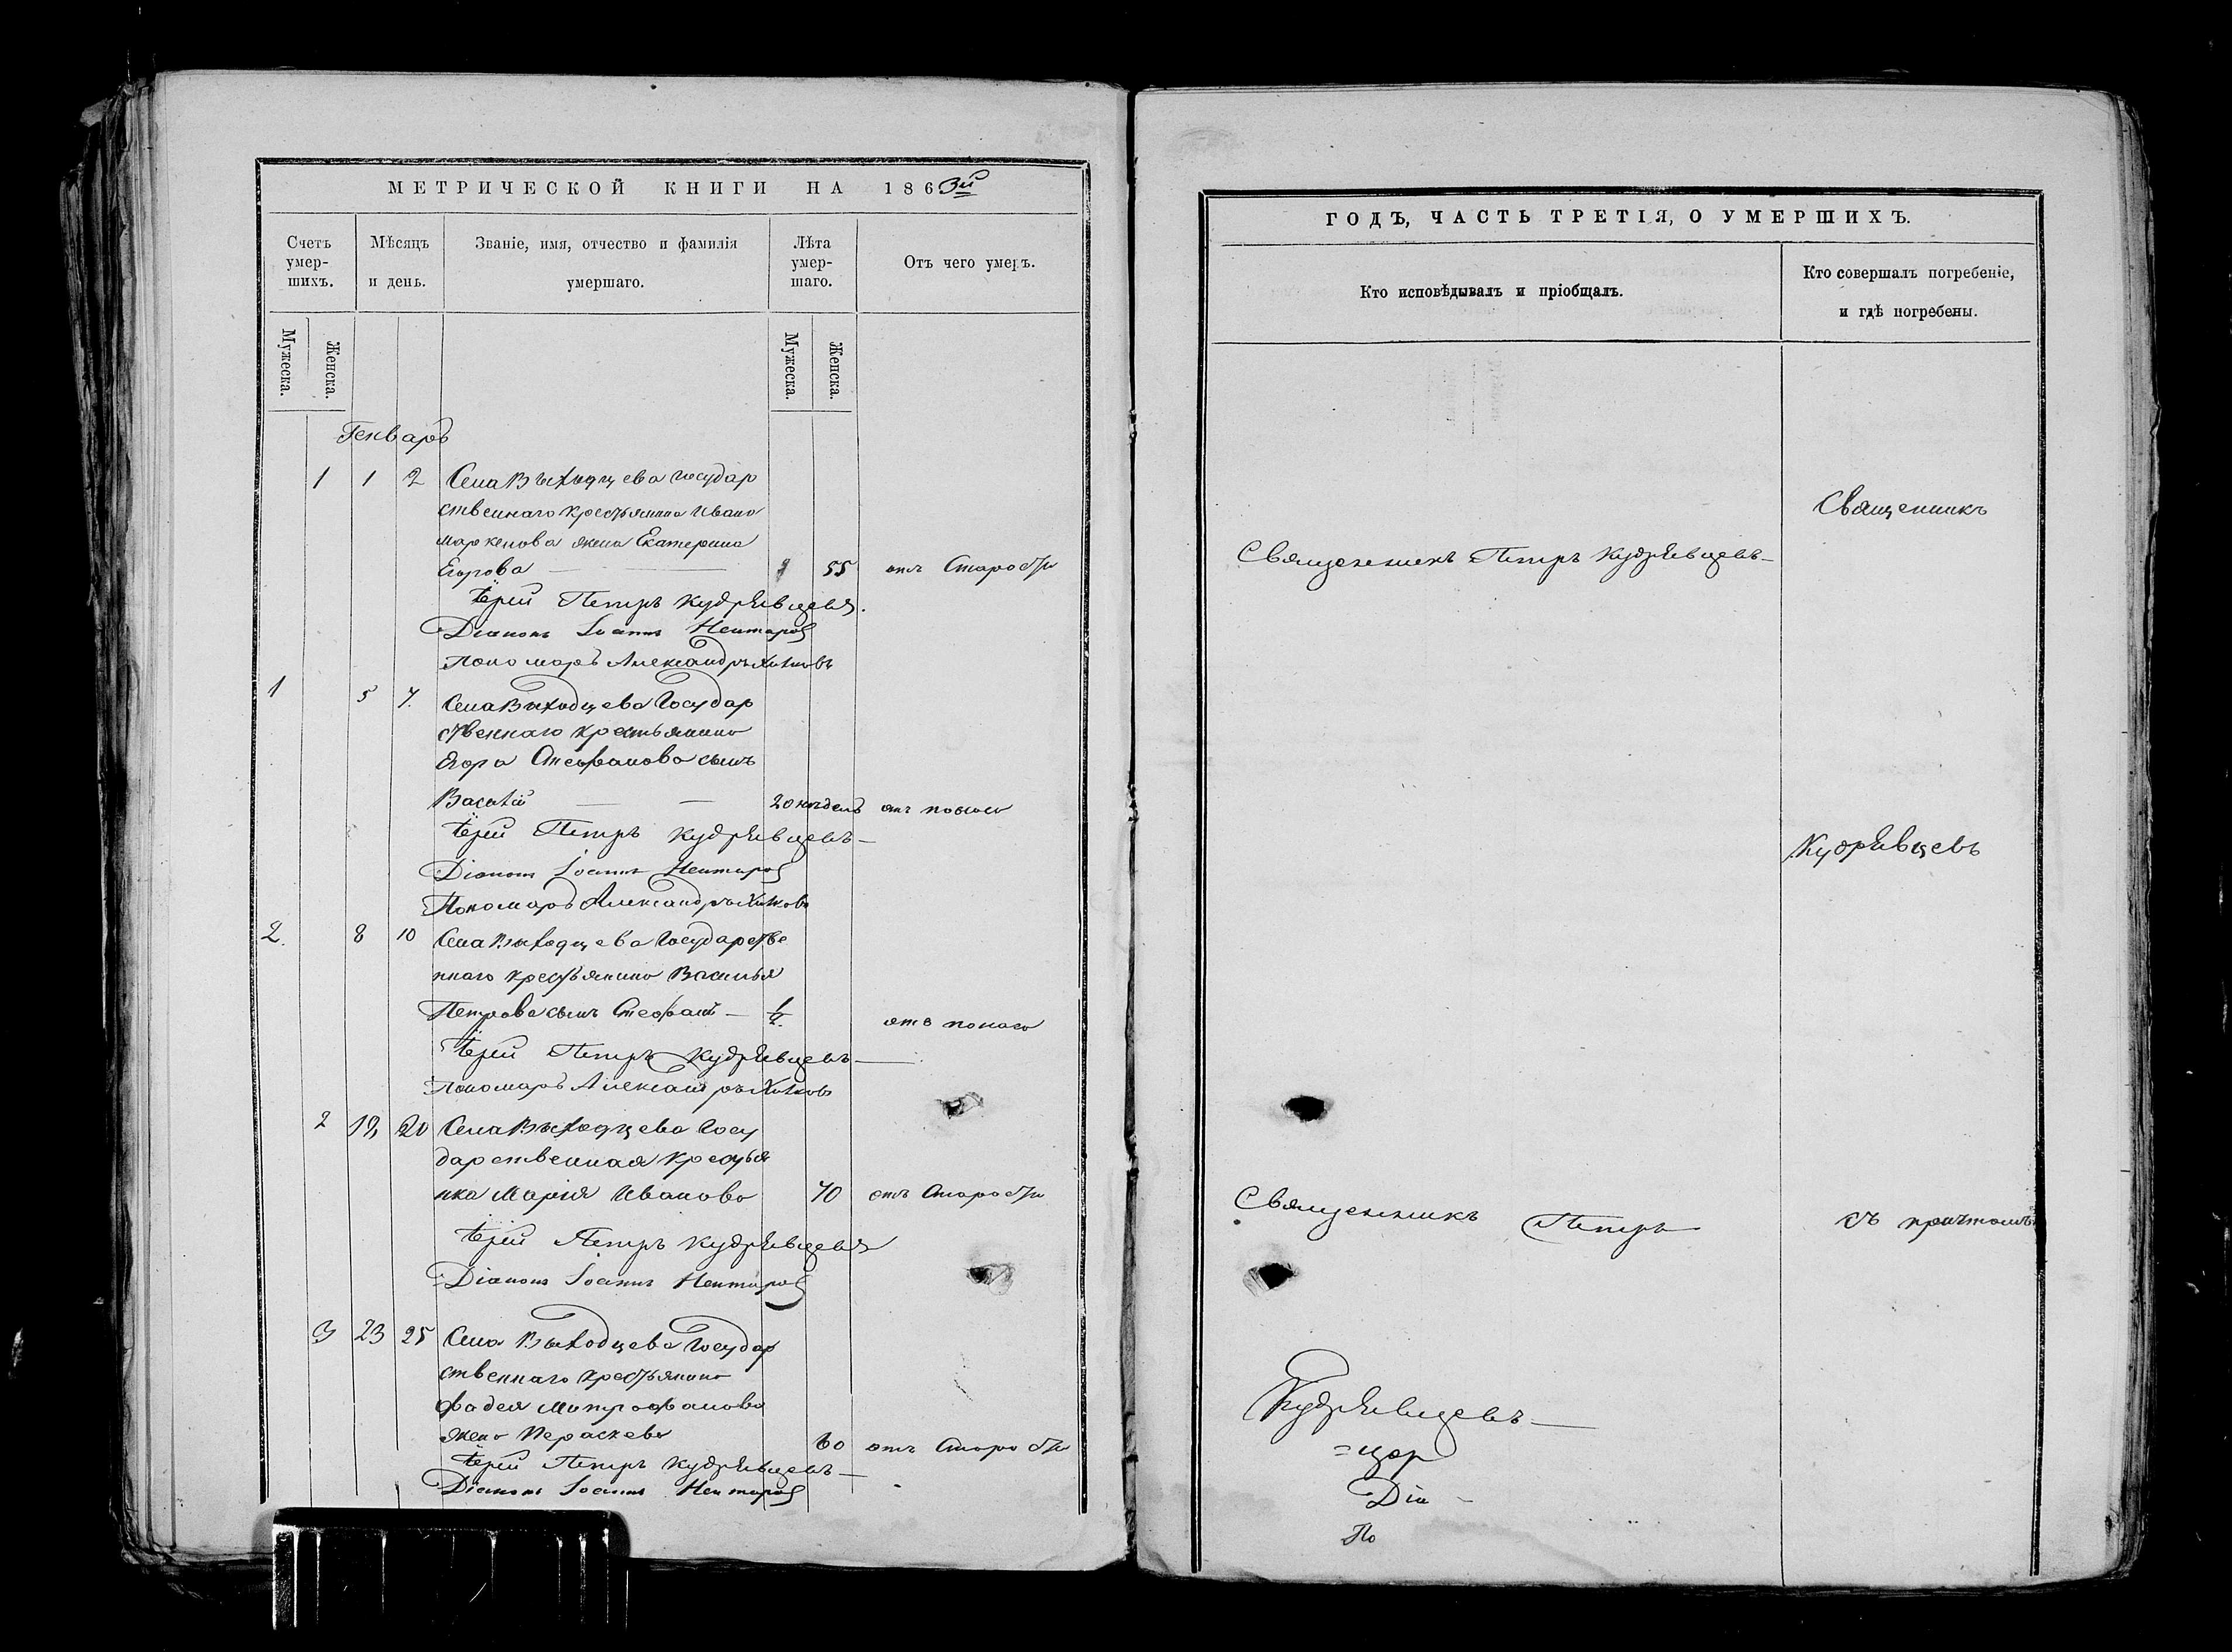 МЕТРИЧЕСКОЙ КНИГИ НА 1863й
Счетъ умер-шихъ.
Мѣсяцъ и день.
Званіе, имя, отчество и фамилія умершаго.
Лѣта умер-шаго.
Отъ чего умеръ.
Мужеска.
Женска.
Мужеска.
Женска.
Генварь
1 1 2 Села Выходцева Государ
ственнаго крестьянина Ивана
Маркелова жена Екатерина
Егорова 55 отъ старости
Іерей Петръ Кудрявцевъ.
Діаконъ Іоаннъ Нектаров
Пономарь Александръ
1 5 7. Села Выходцева Государ
ственнаго крестьянина
Егора Стефанова сынъ
Василій 20 недель отъ поноса
Іерей Петръ Кудрявцевъ
Діаконъ Іоаннъ Нектаров
Пономарь Александръ
2. 8 10 Села Выходцева Государстве
ннаго крестьянина Василья
Петрова сынъ Стефанъ 1/2 отъ поноса
Іерей Петръ Кудрявцевъ
Пономарь Александръ
2 20 Села Выходцева Госу
дарственная крестья
нка Марія Иванова 70 отъ старости
Іерей Петръ Кудрявцевъ
Діаконъ Іоаннъ Нектаров
3 23 25 Села Выходцева Государ
ственнаго крестьянина
Фадея Митрофанова
жена Параскева 60 отъ старости
Іерей Петръ Кудрявцевъ
Діаконъ Іоаннъ Нектаров
ГОДЪ, ЧАСТЬ ТРЕТІЯ, О УМЕРШИХЪ.
Кто исповѣдывалъ и пріобщалъ.
Кто совершалъ погребеніе,
и гдѣ погребены.
Священникъ
Священникъ Петръ Кудрявцевъ
Кудрявцевъ
Священникъ Петръ
съ причтомъ
Кудрявцевъ
Діа
По